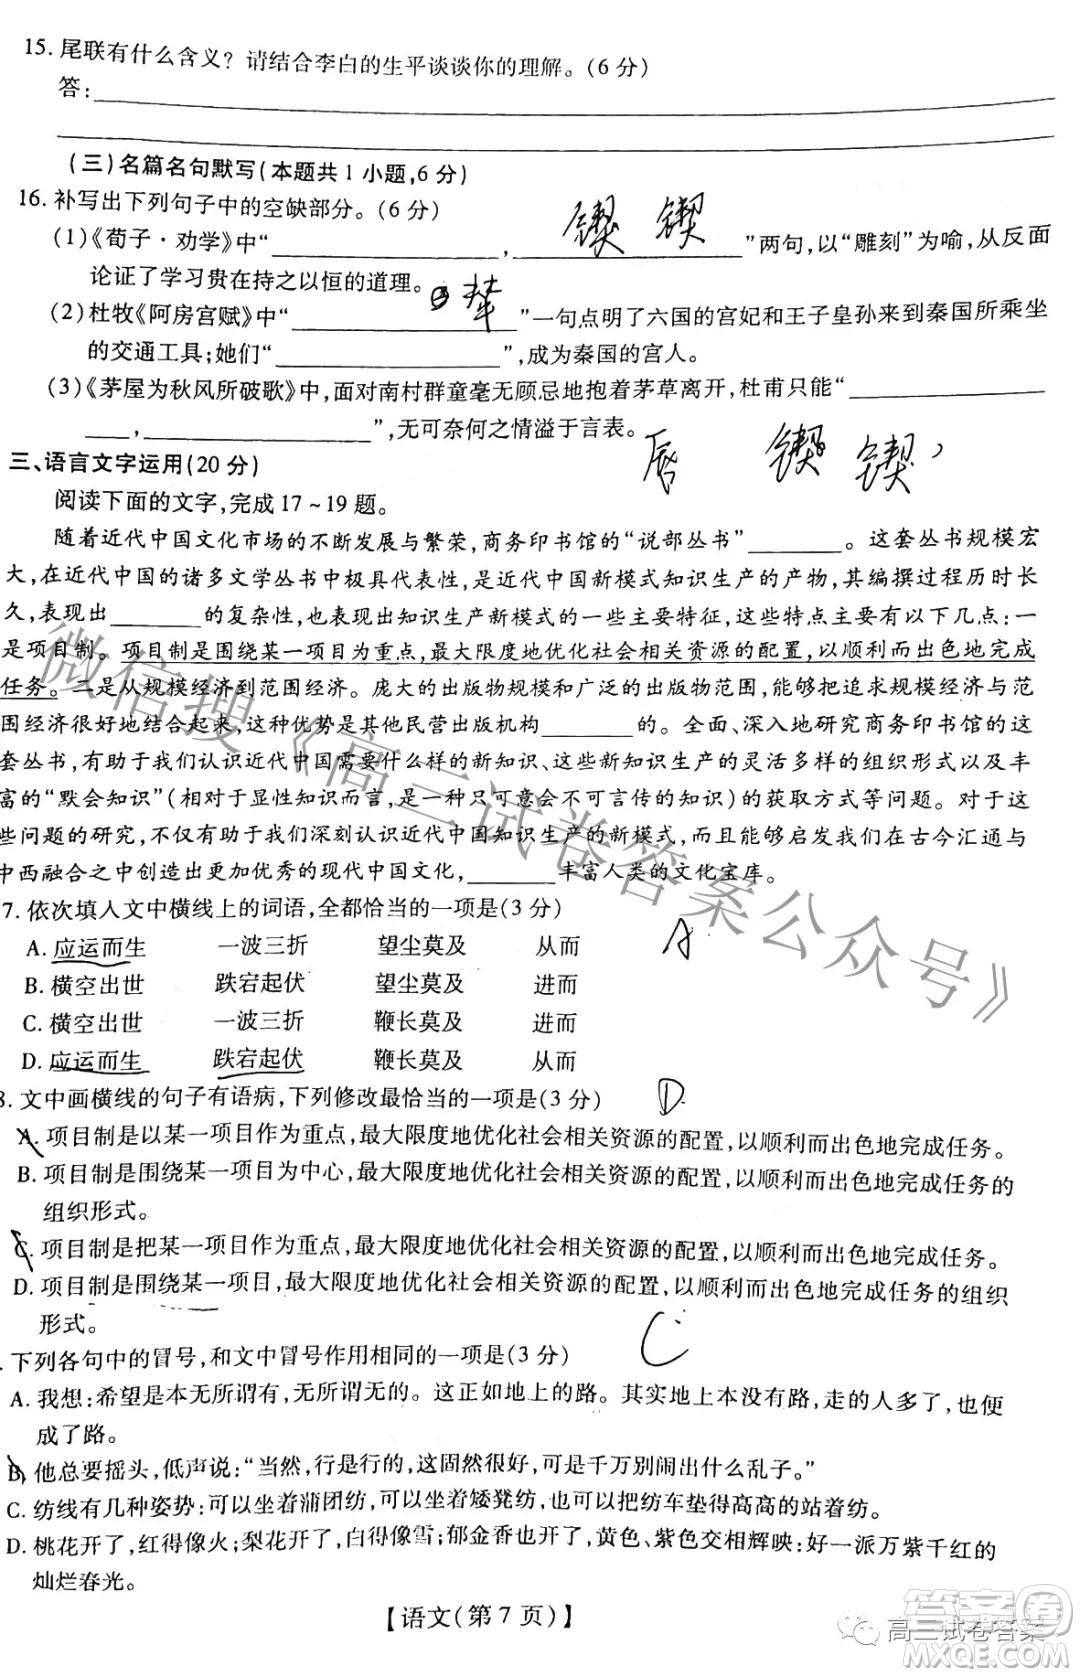 15. 尾联有什么含义？请结合李白的生平谈谈你的理解。(6分)
答:
(三)名篇名句默写(本题共1小题,6分)
16. 补写出下列句子中的空缺部分。(6分)
锲 锲
(1)《荀子·劝学》中“____,____”两句,以“雕刻”为喻,从反面
论证了学习贵在持之以恒的道理。
辇
(2)杜牧《阿房宫赋》中“____”一句点明了六国的宫妃和王子皇孙来到秦国所乘坐
的交通工具;她们“____”,成为秦国的宫人。
(3)《茅屋为秋风所破歌》中,面对南村群童毫无顾忌地抱着茅草离开,杜甫只能“____
____,____”,无可奈何之情溢于言表。
唇 锲 锲
三、语言文字运用(20分)
阅读下面的文字,完成17~19题。
随着近代中国文化市场的不断发展与繁荣,商务印书馆的“说部丛书”____。这套丛书规模宏
大,在近代中国的诸多文学丛书中极具代表性,是近代中国新模式知识生产的产物,其编撰过程历时长
久,表现出____的复杂性,也表现出知识生产新模式的一些主要特征,这些特点主要有以下几点:一
是项目制。项目制是围绕某一项目为重点,最大限度地优化社会相关资源的配置,以顺利而出色地完成
任务。二是从规模经济到范围经济。庞大的出版物规模和广泛的出版物范围,能够把追求规模经济与范
围经济很好地结合起来,这种优势是其他民营出版机构____的。全面、深入地研究商务印书馆的这
套丛书,有助于我们认识近代中国需要什么样的新知识、这些新知识生产的灵活多样的组织形式以及丰
富的“默会知识”(相对于显性知识而言,是一种只可意会不可言传的知识)的获取方式等问题。对于这
些问题的研究,不仅有助于我们深刻认识近代中国知识生产的新模式,而且能够启发我们在古今汇通与
中西融合之中创造出更加优秀的现代中国文化,____丰富人类的文化宝库。
7. 依次填入文中横线上的词语,全都恰当的一项是(3分)
A
A. 应运而生 一波三折 望尘莫及 从而
B. 横空出世 跌宕起伏 望尘莫及 进而
C. 横空出世 一波三折 鞭长莫及 进而
D. 应运而生 跌宕起伏 鞭长莫及 从而
8. 文中画横线的句子有语病,下列修改最恰当的一项是(3分)
D
A. 项目制是以某一项目作为重点,最大限度地优化社会相关资源的配置,以顺利而出色地完成任务。
B. 项目制是围绕某一项目为中心,最大限度地优化社会相关资源的配置,以顺利而出色地完成任务的
组织形式。
C. 项目制是把某一项目作为重点,最大限度地优化社会相关资源的配置,以顺利而出色地完成任务。
D. 项目制是围绕某一项目,最大限度地优化社会相关资源的配置,以顺利而出色地完成任务的组织
形式。
C
. 下列各句中的冒号,和文中冒号作用相同的一项是(3分)
A. 我想:希望是本无所谓有,无所谓无的。这正如地上的路。其实地上本没有路,走的人多了,也便
成了路。
B. 他总要摇头,低声说:“当然,行是行的,这固然很好,可是千万别闹出什么乱子。”
C. 纺线有几种姿势:可以坐着蒲团纺,可以坐着矮凳纺,也可以把纺车垫得高高的站着纺。
D. 桃花开了,红得像火;梨花开了,白得像雪;郁金香也开了,黄色、紫色交相辉映:好一派万紫千红的
灿烂春光。
【语文(第7页)】
微信搜《高三试卷答案公众号》
高三试卷答案
答案圈
MXQE.COM